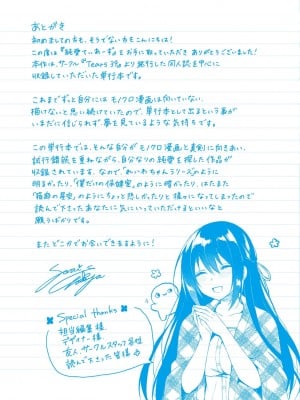 あとがき
初めましての方も、そうでない方もこんにちは!
この度は『純撃てぃあーず』をお手に取っていただきありがとうございました!
本作は、サークル『Tears39』より発行した同人誌を中心に
収録していただいた単行本です。
これまでずっと自分にはモノクロ漫画は向いていない、
描けないと思い続けていたので、単行本として出るという事が
いまだに信じられず夢を見ているような気持ちです。
この単行本では、そんな自分がモノクロ漫画と真剣に向きあい、
試行錯誤を重ねながら、自分なりの純愛を探した作品が
収録されています。なので、「れいわちゃんシリーズ」のように
明るかったり、「僕だけの保健室」のように暗かったり、はたまた
のようにちょっと悲しかったりと様々になってしまったので
読んで下さったあなたに気にいっていただけるといいなと
願うばかりです。
またどこかでお会いできますように!
Special thanks
担当編集様
デザイナー様
友人、サークルスタッフ各位
読んで下さった皆様